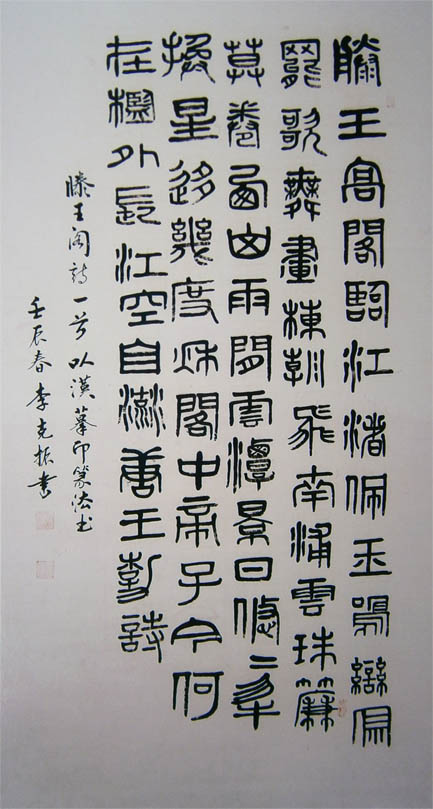 滕王高閣臨江渚佩玉鳴鸞
罷歌舞畫棟朝飛南浦雲珠簾
莫卷西山雨閒雲潭景日悠〻物
換星移幾度秋閣中帝子今何
在檻外長江空自流唐王勃詩
滕王阁诗一首以漢摹印篆法书
壬辰春李克振書